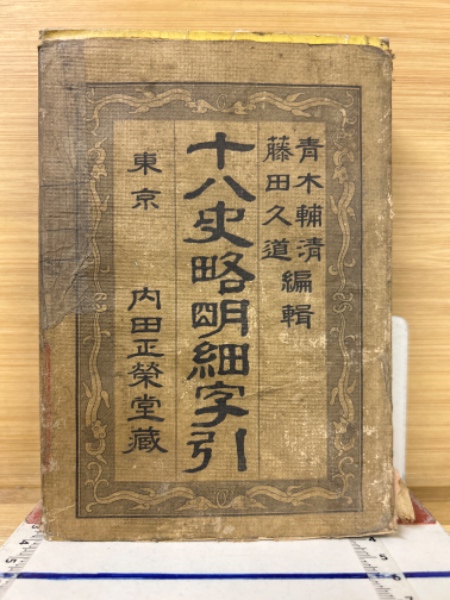 青木輔清
藤田久道
編輯
十八史略明細字引
東京 内田正榮堂藏